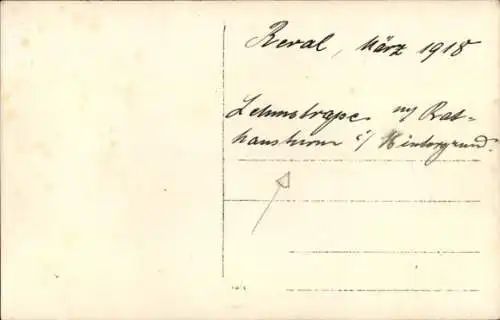 Reval, März 1918
Lehmstraße m/ Rat-
hausturm i/ Hintergrund.